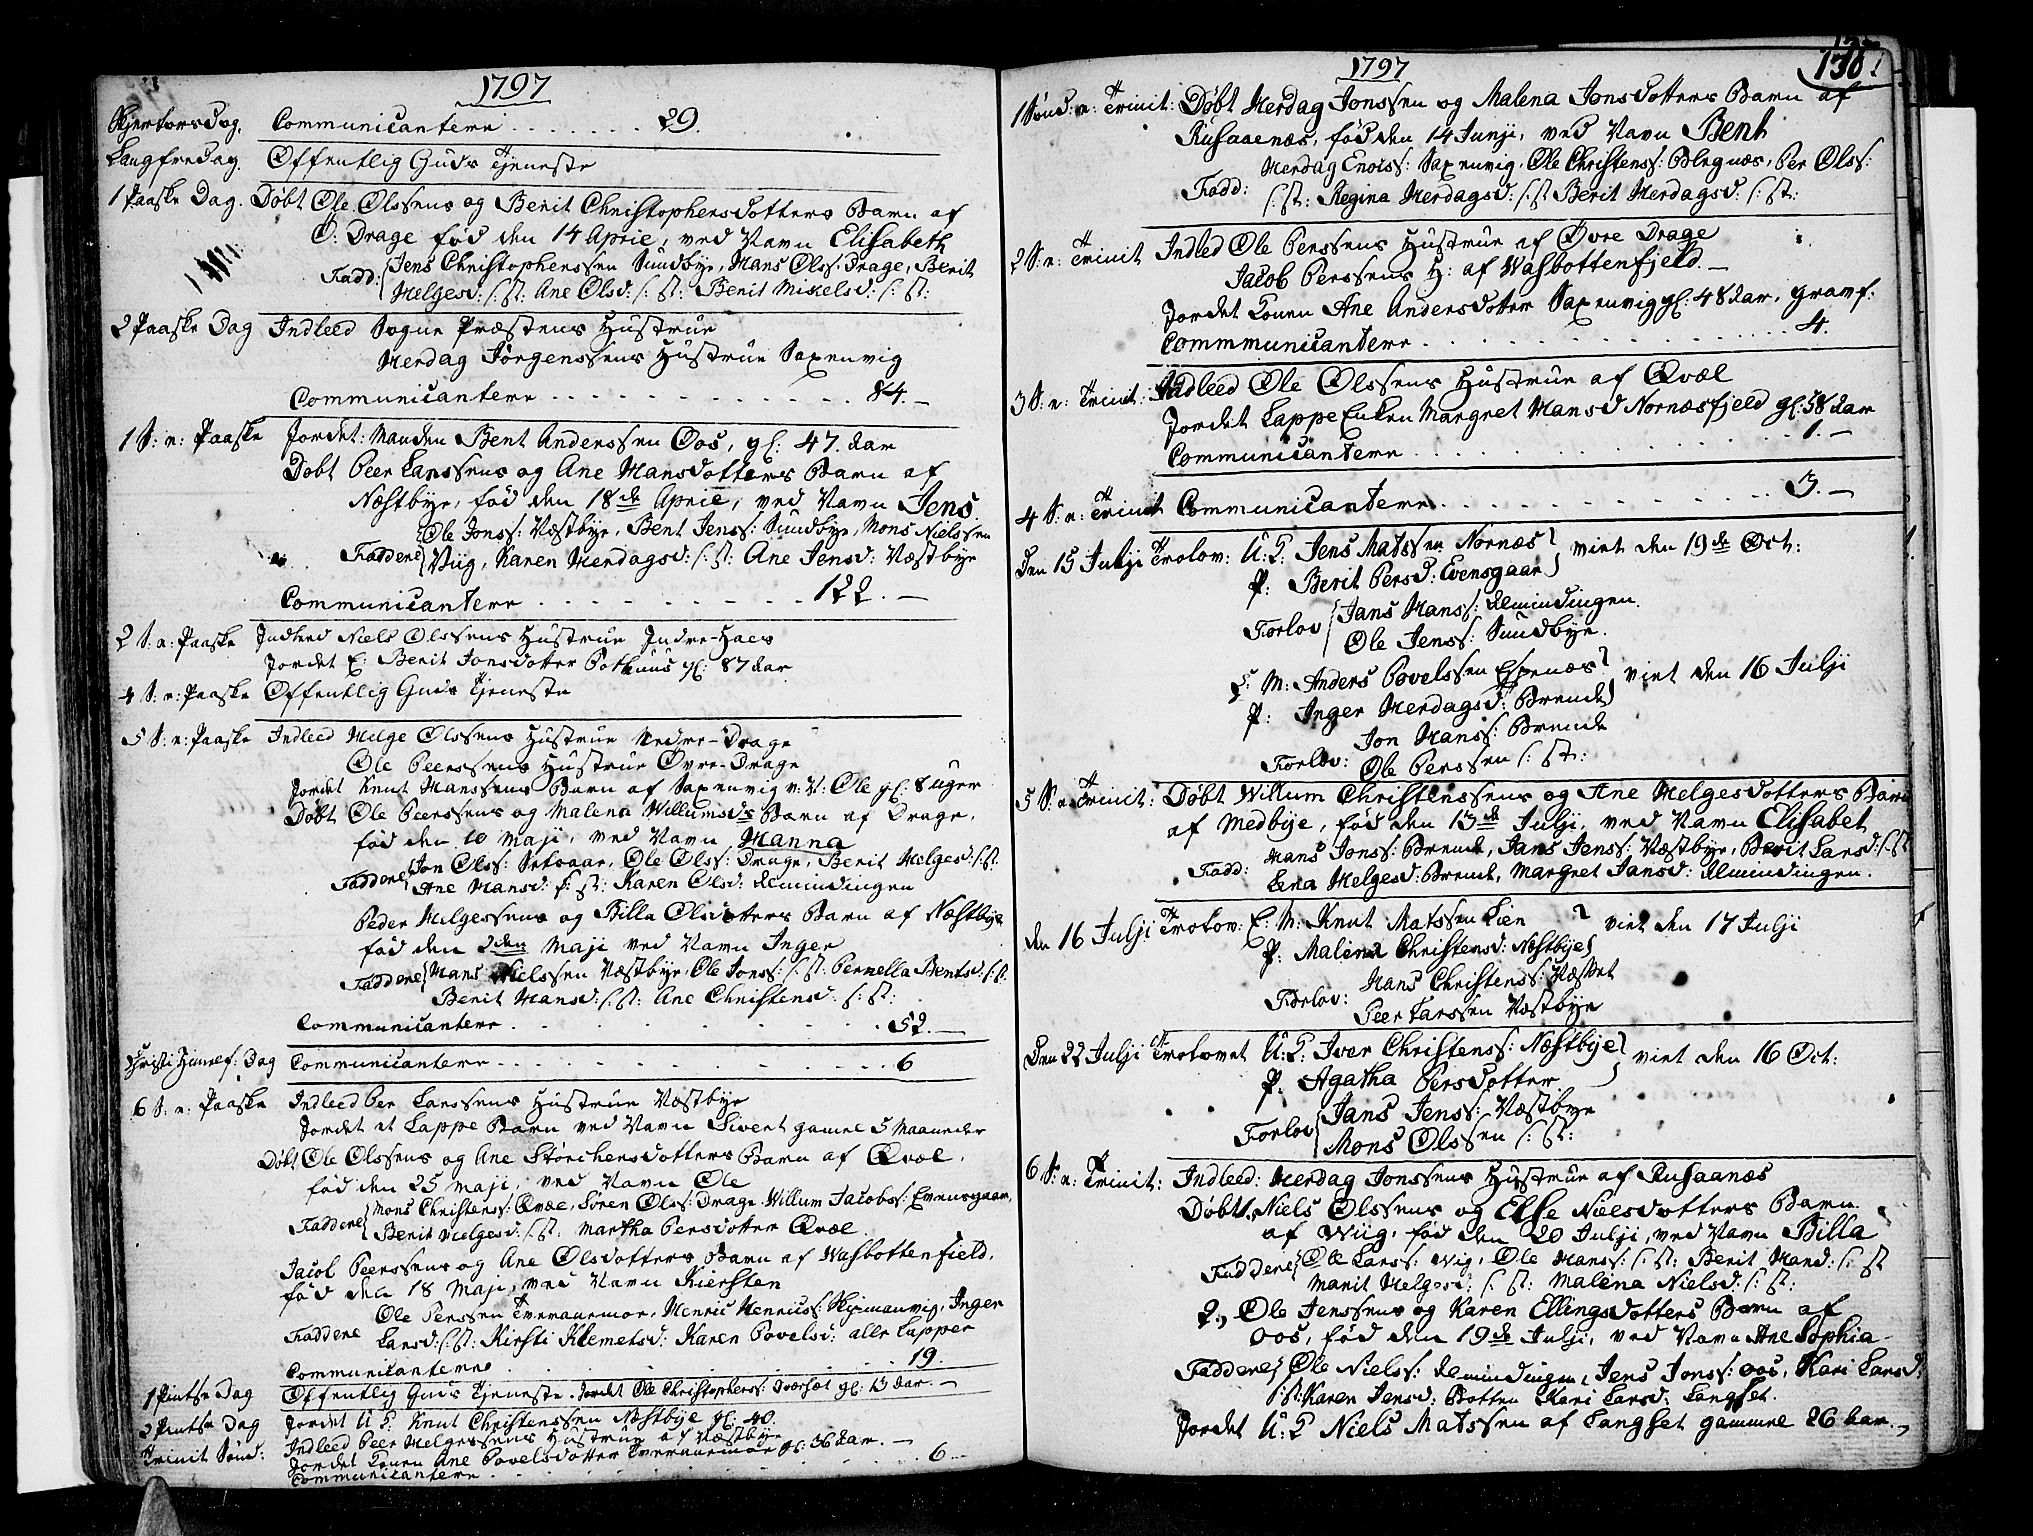 1797
Skjertorsdag. Communicantere ....... 29.
Langfredag. Offentlig Guds Tjeneste
1 Paaske Dag. Døbt Ole Olssens og Berit Christophersdotters Barn af
Ø: Drage fød den 14 Aprie, ved Navn Elisabeth
Fadd: Jens Christophersen Sundbye, Hans Olss: Drage, Berit
Helgesd: s: st: Ane Olsd: s: st: Berit Mikelsd: s: st:
2 Paaske Dag Indleed Sogne Præstens Hustrue
Herdag Jörgenssens Hustrue Saxenvig
Communicantere ............. 84.
1 S: e: Paaske Jordet: Manden Bent Anderssen Oos, gl: 47. Aar
Døbt Peer Larssens og Ane Hansdotters Barn af
Næstbye, fød den 18de Aprie, ved Navn Jens
Ole Jonss: Væstbye, Bent Jenss: Sundbye, Mons Nielssen
Faddere Viig, Karen Herdagsd: s: st: Ane Jensd: Væstbye
Communicantere .......... 122.
2 S: e: Paaske Indleed Niels Olssens Hustrue Indre-Haes
Jordet E: Berit Jonsdotter Pothuus gl: 87 Aar
4 S: e: Paaske Offentlig Guds Tjeneste
5 S: e: Paaske Indleed Helge Olssens Hustrue Nedre-Drage
Ole Peerssens Hustrue Øvre-Drage
Jordet Knut Hanssens Barn af Saxenvig v: N: Ole gl: 8 uger
Døbt Ole Peerssens og Malena Willumsds Barn af Drage,
fød den 10 Maji, ved Navn Hanna
Jon Olss: Setsaar, Ole Olss: Drage, Berit Helgesd: s: st:
Faddere Ane Hansd: s: st: Karen Olsd: Almindingen
Peder Helgessens og Billa Olsdotters Barn af Næstbye
fød den 2den Maji ved Navn Inger
Faddere Hans Nielssen Væstbye, Ole Jonss: s: st: Pernella Bentsd: s: st:
Berit Hansd: s: st: Ane Christensd: s: st:
Communicantere ............ 52.
Christi Himelf: Dag Communicantere ............ 6
6 S: e: Paaske Indleed Per Larssens Hustrue Væstbye
Jordet et Lappe Barn ved Navn Sivert gamel 5 Maaneder
Døbt Ole Olssens og Ane Störchersdotters Barn af Qvæl,
fød den 25 Maji, ved Navn Ole
Mons Christenss: Qvæl, Søren Olss: Drage, Willum Jacobss: Evensgaar,
Faddere Berit Helgesd: s: st: Martha Persdotter Qvæl
Jacob Peerssens og Ane Olsdotters Barn af Wasbottenfield,
fød den 18 Maji, ved Navn Kiersten
Ole Perssen Tveraaemoe, Henric Henricss: Skjemanvig, Inger
Faddere Larsd: s: st: Kirsti Klemetsd: Karen Povelsd: alle Lapper
Communicanterne .......... 19.
1 Pintse Dag Offentlig Guds Tjeneste. Jordet Ole Christopherss: Dversæt gl: 13 Aar.
2 Pintse Dag Jordet U: K: Knut Christenssen Næstbye gl: 40.
Trinit Sønd: Indleed Peer Helgessens Hustrue af Næstbye
Jordet Konen Ane Povelsdotter Tveraaemoe gl: 36 Aar.
Communicantere ............ 6.
1797
138
1 Sønd: e: Trinit: Døbt Herdag Jonssen og Malena Jonsdotters Barn af
Rusaaenæs, fød den 14 Junji, ved Navn Bent
Herdag Enoiss: Saxenvig, Ole Christenss: Blegnæs, Per Olss:
Fadd: s: st: Regina Herdagsd: s: st: Berit Herdagsd: s: st:
2 S: e: Trinit Indled Ole Perssens Hustrue af Øvre Drage
Jacob Perssens H: af Wasbottenfjeld.
Jordet Konen Ane Andersdotter Saxenvig gl: 48 Aar, gravf:
Commmunicantere .............. 4.
3 S: e: Trinit: Indleed Ole Olssens Hustrue af Qvæl
Jordet Lappe Enken Margret Hansd Nornæsfjeld gl: 58 Aar
Communicantere ............. 1.
4 S: e: Trinit Communicantere ............ 3.
Den 15 Julji Trolov: U: K: Jens Matssen Nornæs
P: Berit Persd: Evensgaar } viet den 19de Oct:
Forlov Jans Hanss: Almindingen.
Ole Jenss: Sundbye.
S: M: Anders Povelssen Espenæs
P: Inger Herdagsd: Brende } viet den 16 Julji
Jon Hanss: Brende
Forlov: Ole Perssen s: st:
5 S: e: Trinit: Døbt Willum Christenssens og Ane Helgesdotters Barn
af Medbye, fød den 13de Julji, ved Navn Elisabet
Hans Jonss: Brende, Jans Jenss: Væstbye, Berit Larsd: s: st
Fadd: Lena Helgesd: Brende, Margret Jansd: Almindingen.
den 16 Julji Trolov: E: M: Knut Matssen Lien
P: Malena Christensd: Næstbye } viet den 17 Julji
Hans Christenss: Væsset
Forlov: Peer Larssen Væstbye
Den 22 Julji Trolovet U: K: Iver Christenss: Næstbye
P: Agatha Persdotter } viet den 16 Oct:
Forlov Jans Jenss: Væstbye
Mons Olssen s: st:
6 S: e: Trinit: Indleed: Herdag Jonssens Hustrue af Rusaanæs
Døbt 1. Niels Olssens og Else Nielsdotters Barn
af Wiig, fød den 20 Julji, ved Navn Billa
Faddere Ole Larss: Wig, Ole Hanss: s: st: Berit Hansd: s: st
Marit Helgesd: s: st: Malena Nielsd: s: st:
2, Ole Jenssens og Karen Ellingsdotters Barn af
Oos, fød den 19de Julji, ved Navn Ane Sophia
Faddere Ole Nielss: Almindingen, Jens Jonss: Oos, Kari Larsd:
s: st: Karen Jensd: Botten Kari Larsd: Langset.
Jordet U: K Niels Matssen af Langset gammel 26 Aar.